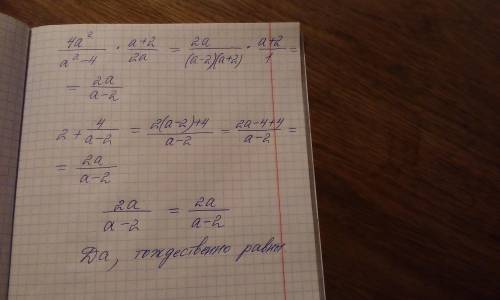 4a²/(a²-4) · (a+2)/2a = 2a/((a-2)(a+2)) · (a+2)/1 =
= 2a/(a-2)
2 + 4/(a-2) = (2(a-2)+4)/(a-2) = (2a-4+4)/(a-2) =
= 2a/(a-2)
2a/(a-2) = 2a/(a-2)
Да, тождественно равны